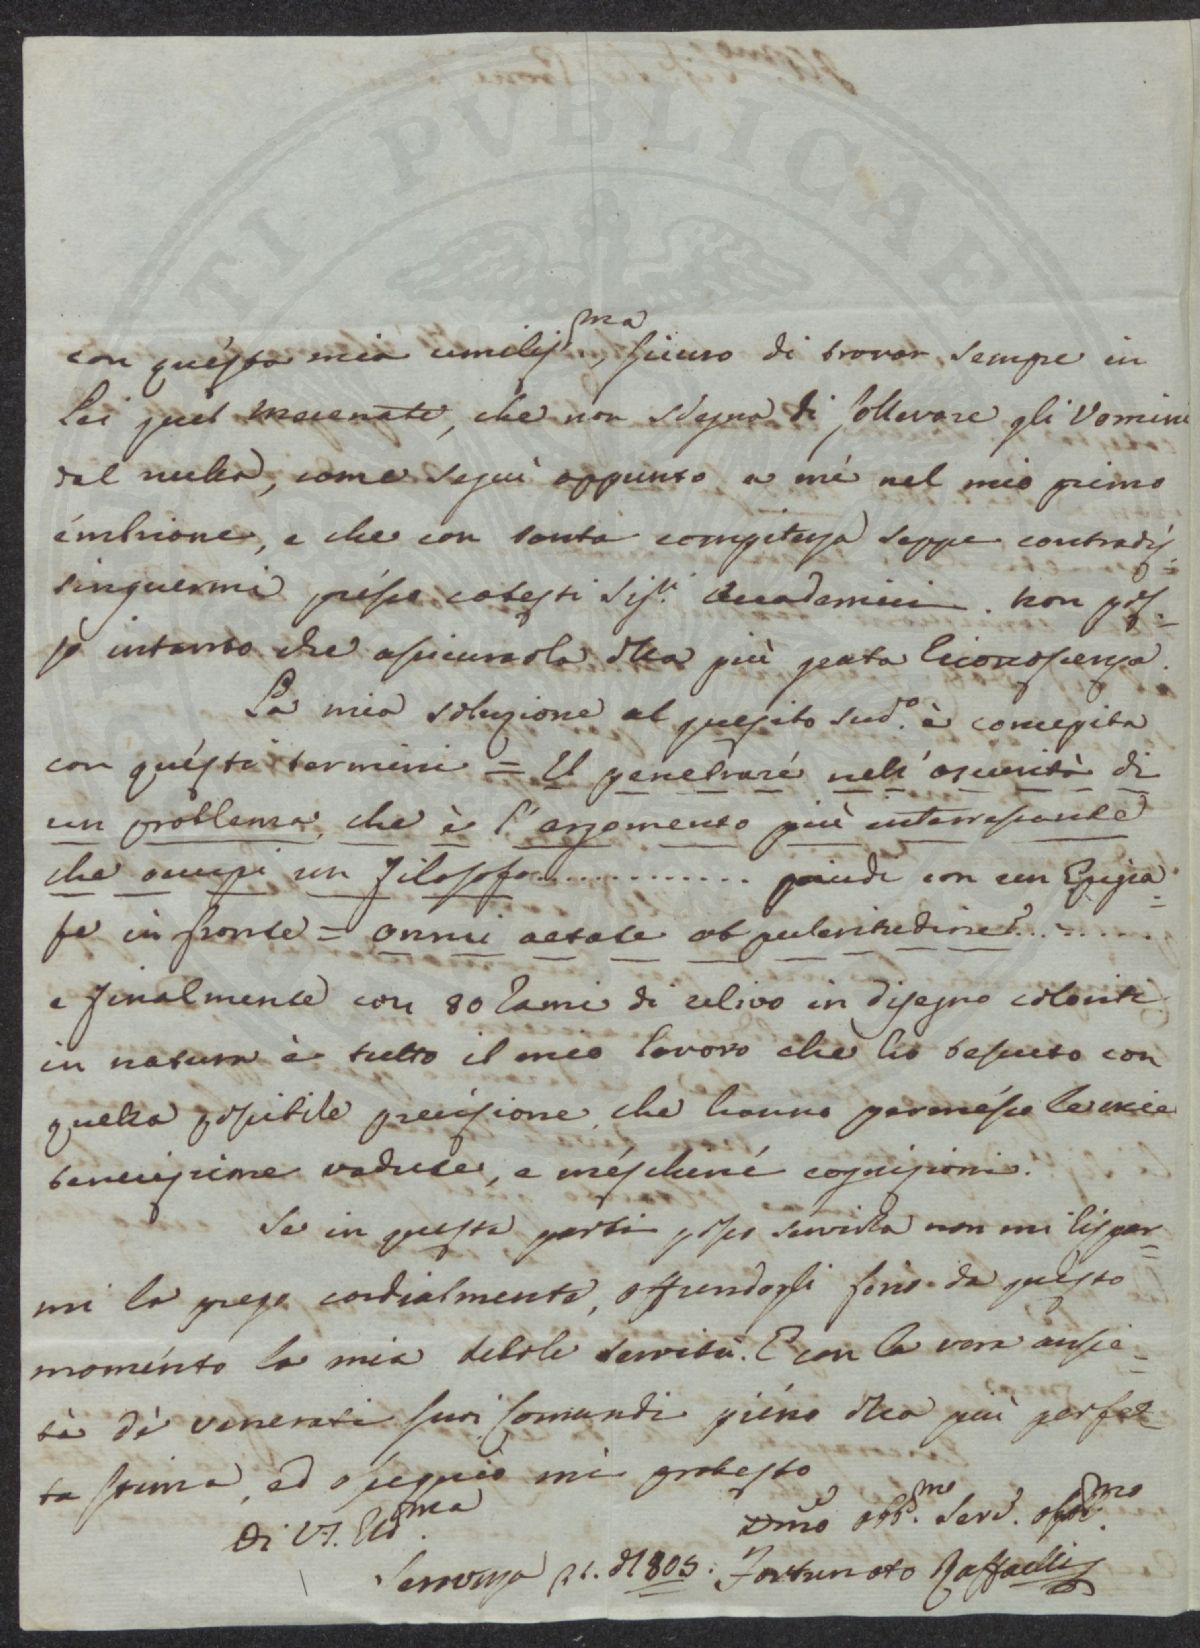 TI PUBLICAE
con questa mia umiliss.ma, sicuro di trovar sempre in
Lei quel Mecenate, che non sdegna di sollevare gli Vomini
dal nulla, come seguì appunto a mé nel mio primo
émbrione, e che con tanta compitezza seppe contradis=
tinguermi présso cotesti Sig.ri Accademici. Non pos=
so intanto che assicurarla della più grata riconoscenza.
La mia soluzione al quesito sud.o è concepita
con quésti termini = Il penetraré nell'oscurità di
un problema, che è l'argomento più interressante
che occupi un Filosofo............ quindi con un Epigra=
fe in fronte = omni aetate ob pulcritudinem.........
e finalmente con 80 Rami di ulivo in disegno coloriti
in natura è tutto il mio lavoro che hò tessuto con
quella possibile precisione, che hanno permésso le mie
tenuissime vedute, e méschiné cognizioni.
Se in questa parti posso servirla non mi rispar=
mi la prego cordialmente, offrendogli fino da questo
moménto la mia debole servitù. E con la vera ansie=
tà dé venerati suoi Comandi piéno della più perfet
ta stima, ed ossequio mi protesto
Di V.S. Ill.ma
Dmo Obb.mo Serv. Oss.mo
1805. Fortunato Raffaelli